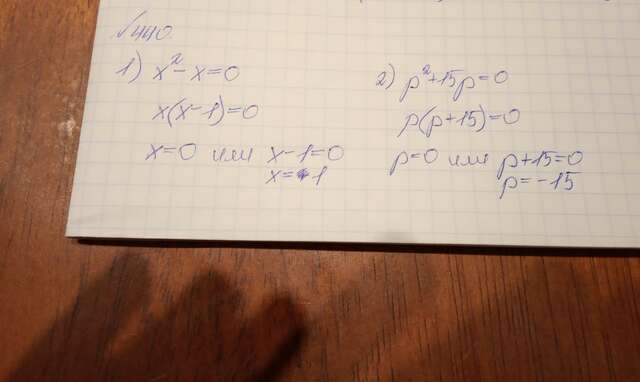 №440.
1) x² - x = 0
x(x-1)=0
x=0 или x-1=0
x=1
2) p²+15p=0
p(p+15)=0
p=0 или p+15=0
p=-15